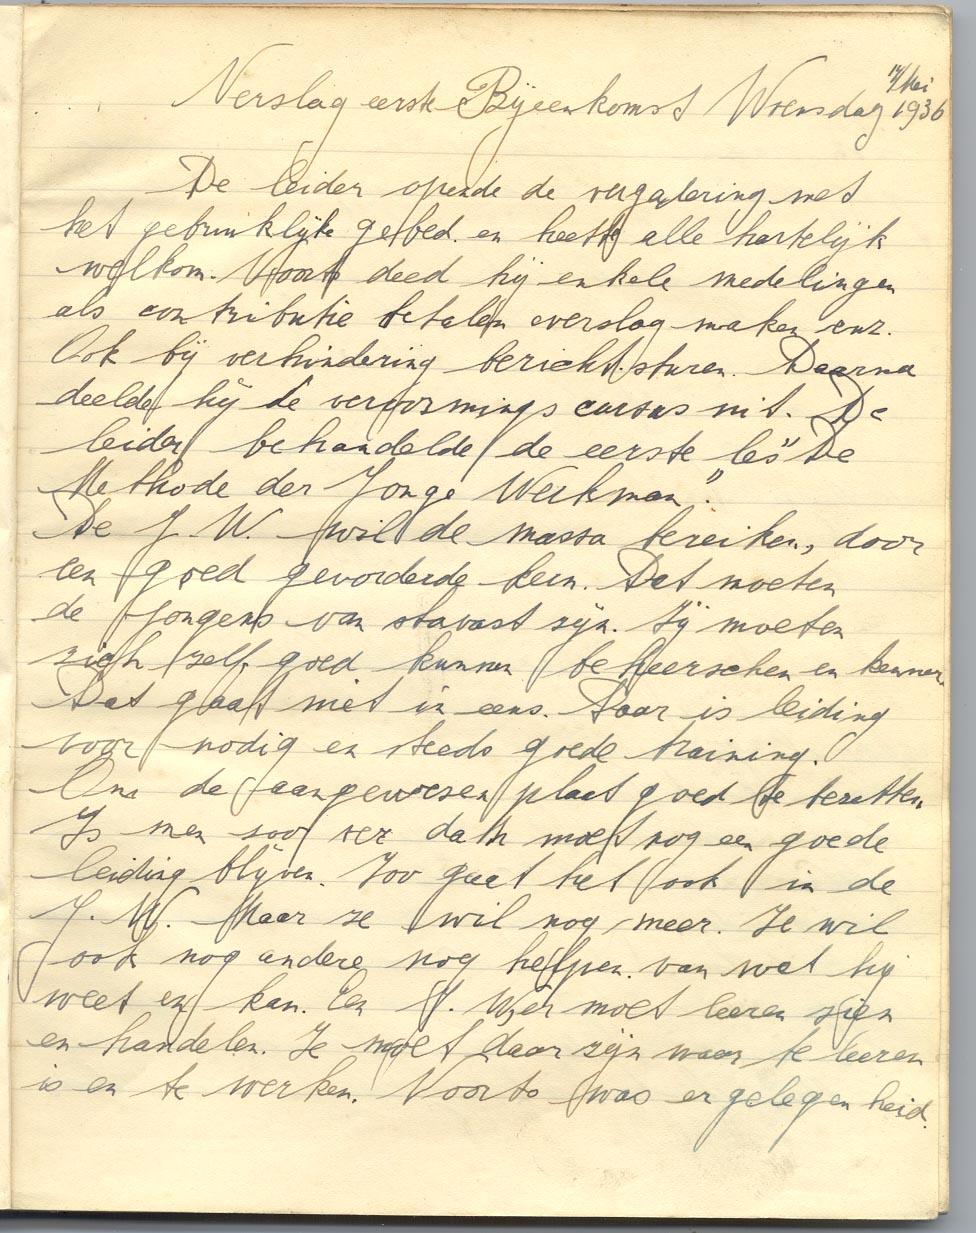 Verslag eerste Bijeenkomst Woensdag Mei 1936
De leider opende de vergadering met
het gebruiklijke gebed. en heette alle hartelijk
welkom. Voorts deed hij enkele medelingen
als contributie betalen overslag maken enz.
Ook bij verhindering bericht sturen. Daarna
deelde hij de vervormings cursus uit. De
leider behandelde de eerste les "De
Methode der Jonge Werkman".
De J. W. wil de massa bereiken, door
een goed gevorderde kern. Dat moeten
de jongens van stavast zijn. Zij moeten
zich zelf goed kunnen beheerschen en kennen
Dat gaat niet in eens. Daar is leiding
voor nodig en steeds goede training.
Om de aangewesen plaat goed te bezetten
Is men soo ver dath moet nog een goede
leiding blijven. Zoo gaat het ook in de
J. W. Maar ze wil nog meer. Ze wil
ook nog andere nog helpen. van wat hij
weet en kan. Een J. W.er moet leeren zien
en handelen. Je moet daar zijn waar te leeren
is en te werken. Voorts was er gelegenheid.